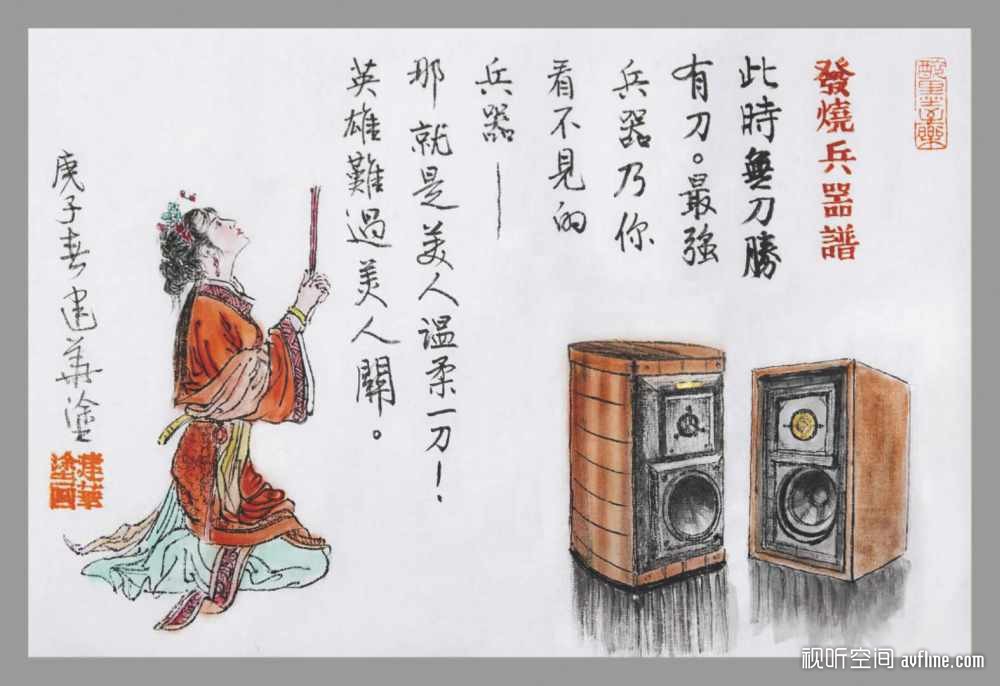 發燒兵器譜
此時無刀勝
有刀。最強
兵器乃你
看不見的
兵器——
那就是美人温柔一刀！
英雄難過美人關。
庚子春建華塗
建華
塗画
视听空间 avfline.com